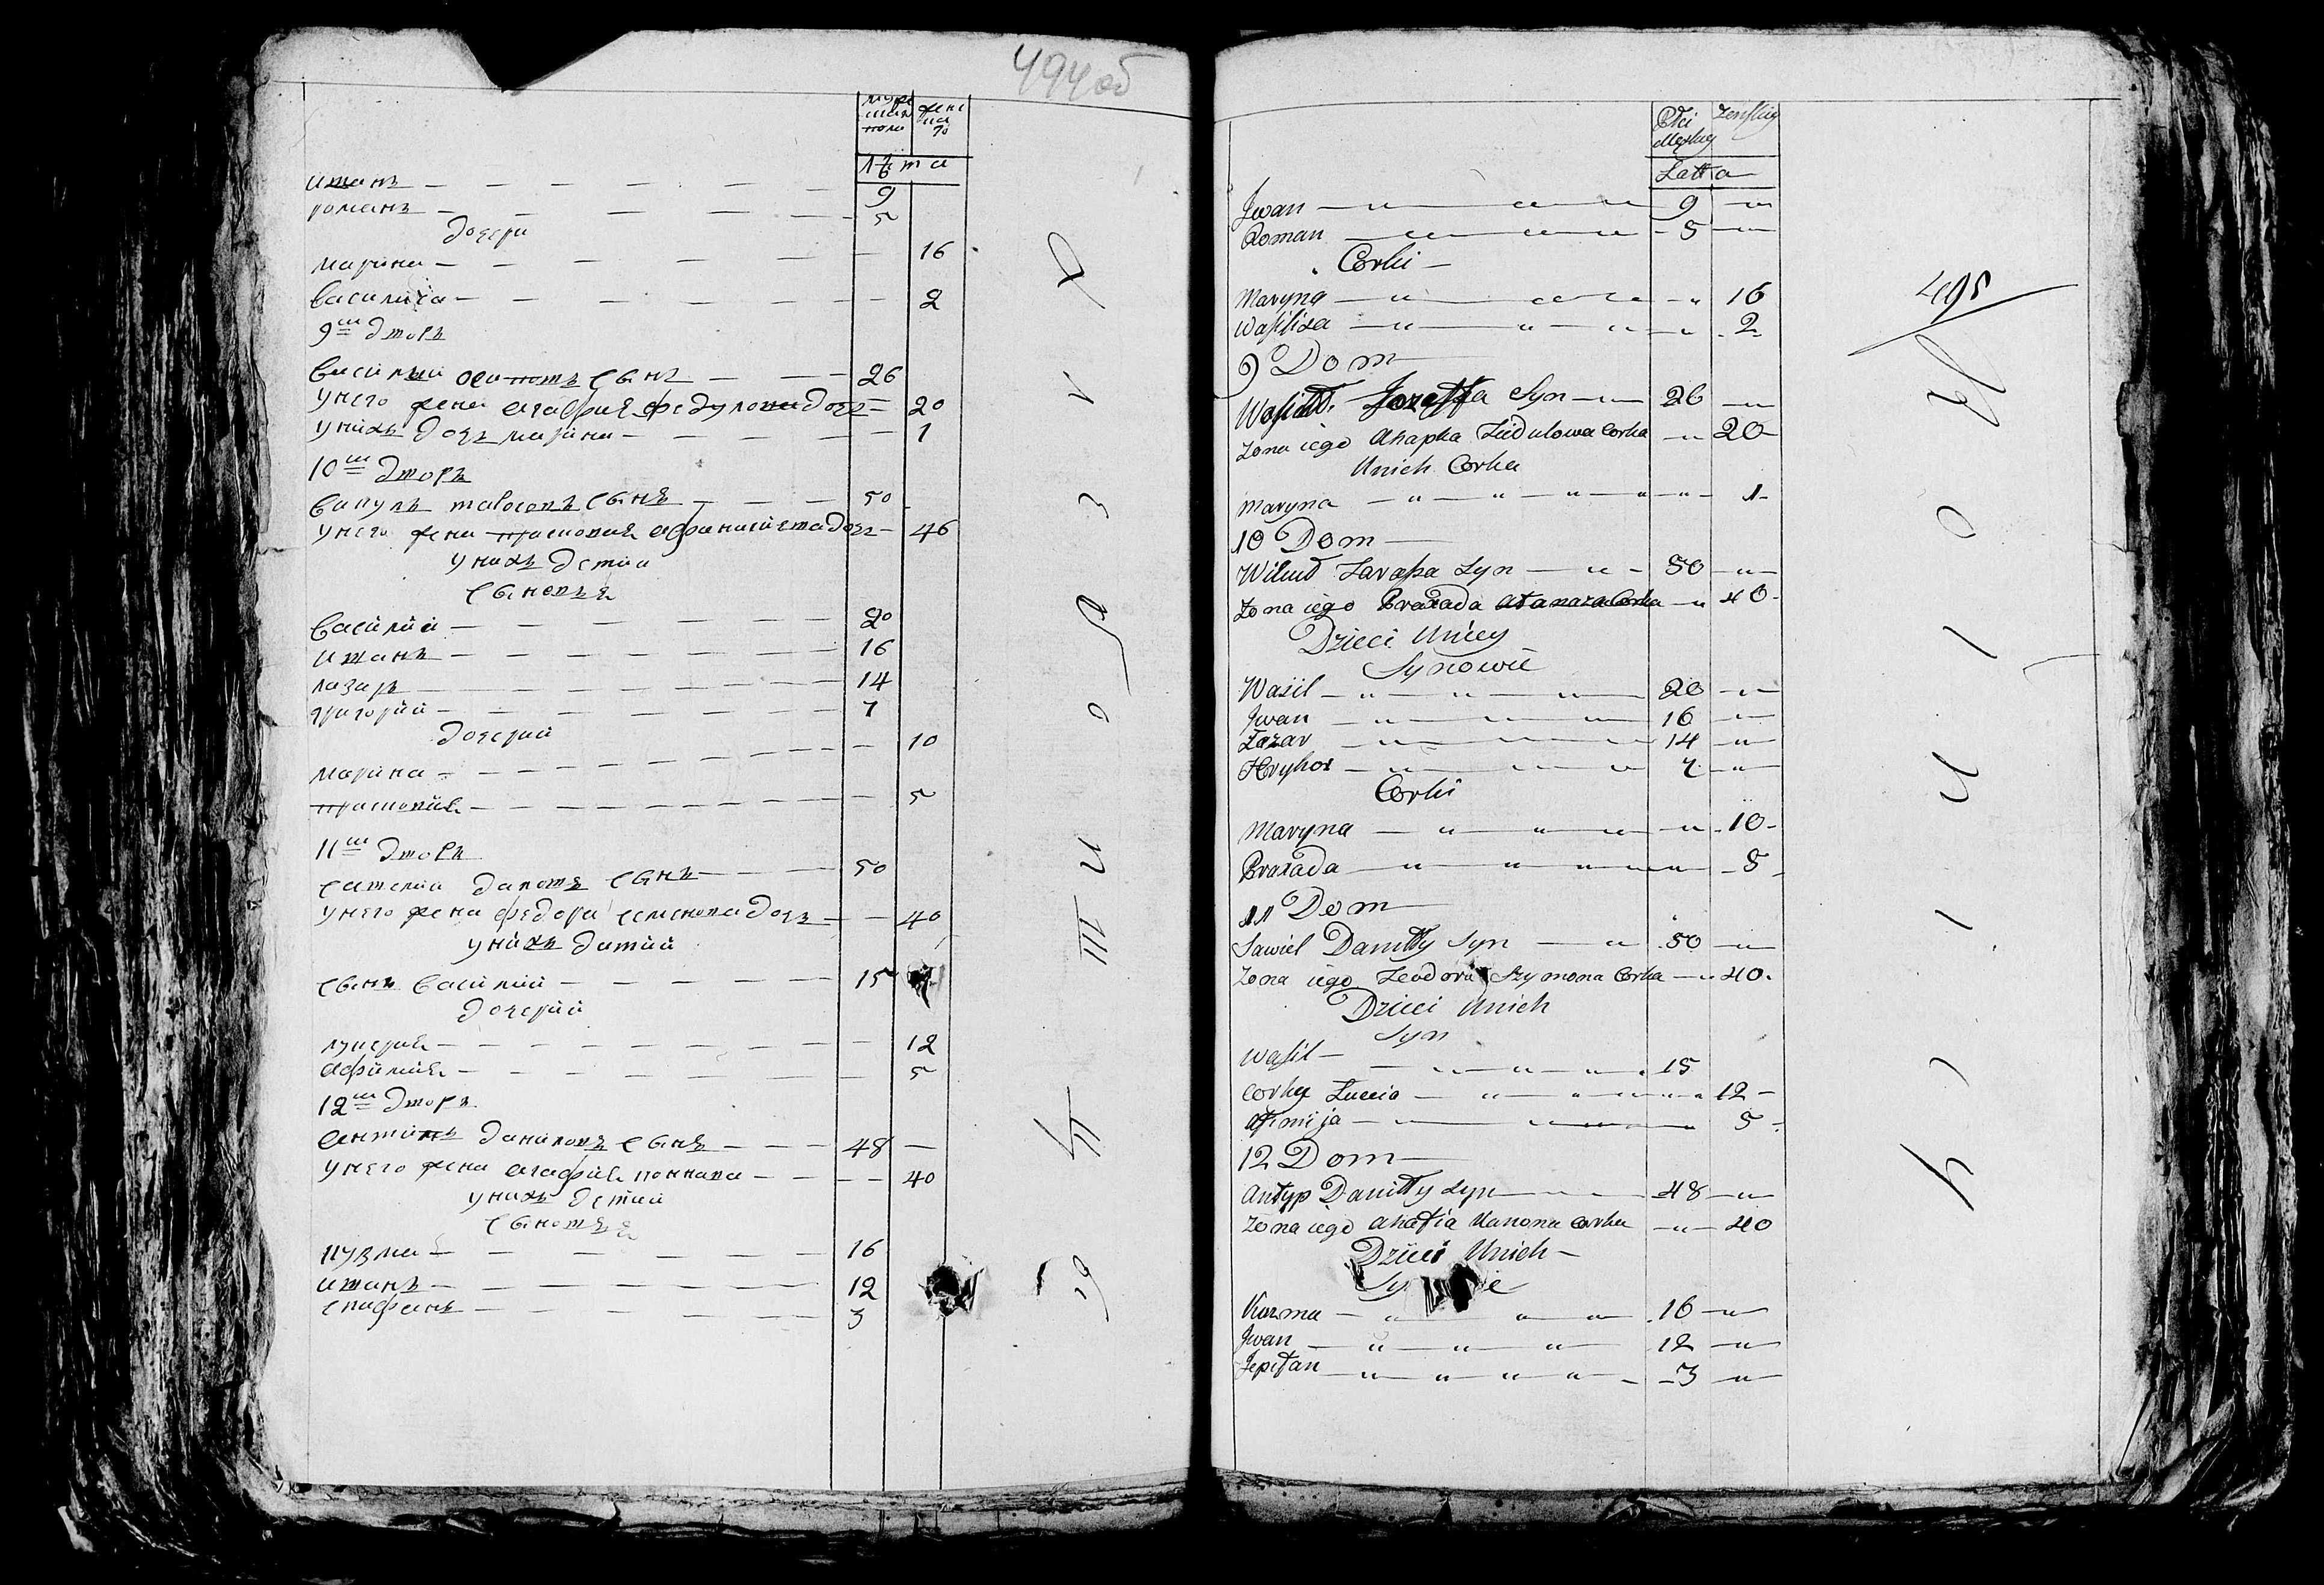 494об
муже
ска
пола
женс
ка
го
лѣта
иванъ — — — — — — 9
романъ — — — — — — 5
дочери
марина — — — — — — 16
василиса — — — — — — 2
9й дворъ
василий осиповъ сынъ — — — 26
у него жена агафия федулова дочь — 20
у нихъ дочь марина — — — — 1
10й дворъ
сынъ — — — 50
у него жена прасковия афанасиева дочь — 46
у нихъ дети
сыновья
василий — — — — — — 20
иванъ — — — — — — 16
лазарь — — — — — — 14
григорий — — — — — — 7
дочерии
марина — — — — — — 10
прасковия — — — — — — 5
11й дворъ
савелий данилов сынъ — — — 50
у него жена федора семенова дочь — — 40
у нихъ дитии
сынъ василий — — — — — 15
дочерии
лукерия — — — — — — 12
афимия — — — — — — 5
12й дворъ
антипъ даниловъ сынъ — — — 48 —
у него жена агафия кононова — — — 40
у нихъ детии
сыновья
кузма — — — — — — 16
иванъ — — — — — — 12
епифанъ — — — — — — 3
495
Płci
Męskiey
Zenskiey
Latta
Jwan — " — " " — 9 — "
Roman — " — " " — 5 — "
Corki —
Maryna — " — " " — " 16
Wasilisa — " — " — " — " 2
9 Dom
Wasil Jozeffa Syn — " — 26 — "
Zona iego Ahapka Fiedulowa Corka — " — 20
Unich Corka
Maryna — " — " — " — " — " — 1
10 Dom
Syn — " — 50 — "
Zona iego Praxada Atanaza Corka — " 40
Dzieci Unicy
Synowie
Wasil — " — " — " — 20 — "
Jwan — " — " — " — 16 — "
Łazar — " — " — " — 14 — "
Hryhor — " — " — " — 7 — "
Corki
Maryna — " — " — " — " 10
Praxada — " — " — " — " — 5
11 Dom
Sawiel Daniłły Syn — " 50 — "
Zona iego Teodora Szymona Corka — " 40
Dzieci Unich
Syn
Wasil — — " — " — " 15
Corky Łuccia — " — " — " — " 12
Afimija — — " — 5
12 Dom
Antyp Daniłły Syn — — — 48 — "
Zona iego Ahafia Kanona Corka — " — 40
Dzieci Unich —
Kuzma — " — " — " — 16 — "
Jwan — " — " — " — 12 — "
Jepifan — " — " — " — " — 3 — "